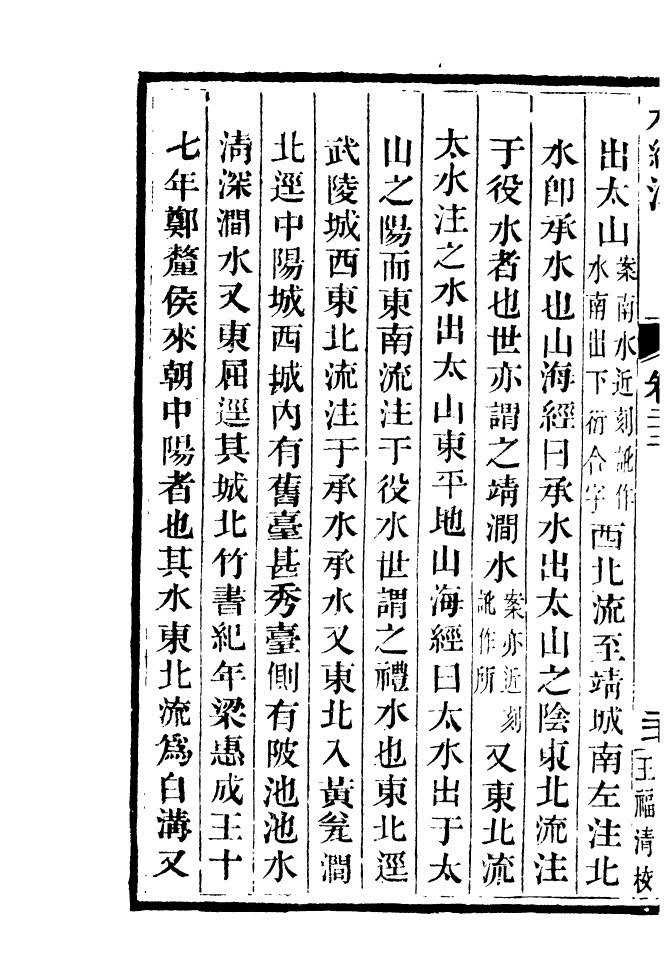 水經注 卷二十二 三 王福清校
出太山案南水近刻訛作水南出下衍合字西北流至靖城南左注北
水卽承水也山海經曰承水出太山之陰東北流注
于役水者也世亦謂之靖澗水案亦近刻訛作所又東北流
太水注之水出太山東平地山海經曰太水出于太
山之陽而東南流注于役水世謂之禮水也東北逕
武陵城西東北流注于承水承水又東北入黃瓮澗
北逕中陽城西城內有舊臺甚秀臺側有陂池池水
淸深澗水又東屆逕其城北竹書紀年梁惠成王十
七年鄭釐侯來朝中陽者也其水東北流爲白溝又